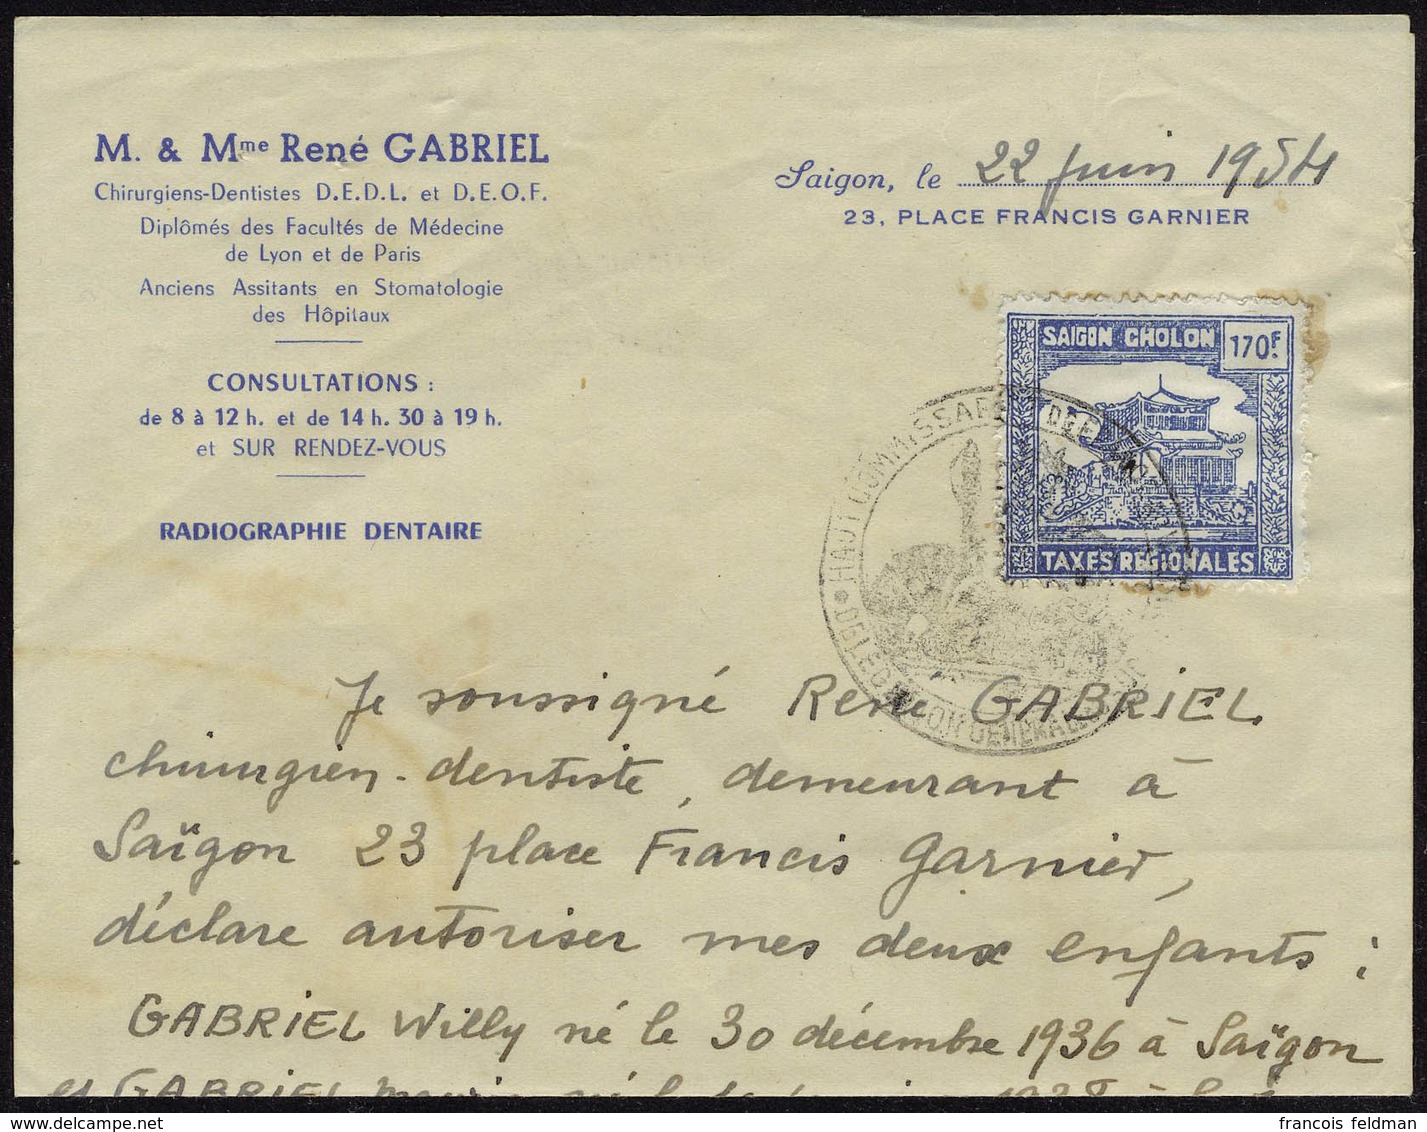 M. & Mme René GABRIEL
Chirurgiens-Dentistes D.E.D.L. et D.E.O.F.
Diplômés des Facultés de Médecine
de Lyon et de Paris
Anciens Assitants en Stomatologie
des Hôpitaux
CONSULTATIONS :
de 8 à 12 h. et de 14 h. 30 à 19 h.
et SUR RENDEZ-VOUS
RADIOGRAPHIE DENTAIRE
Saigon, le 22 juin 1954
23, PLACE FRANCIS GARNIER
SAIGON CHOLON 170F.
TAXES REGIONALES
HAUT COMMISSARE DE
Je soussigné René GABRIEL
chirurgien-dentiste, demeurant à
Saïgon 23 place Francis Garnier,
déclare autoriser mes deux enfants :
GABRIEL Willy né le 30 décembre 1936 à Saïgon
et GABRIEL né le 1938 à
delcampe.net
francois feldman